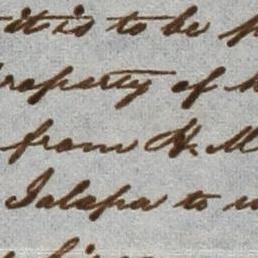 it is to be
property of
from H. M
Jalapa to